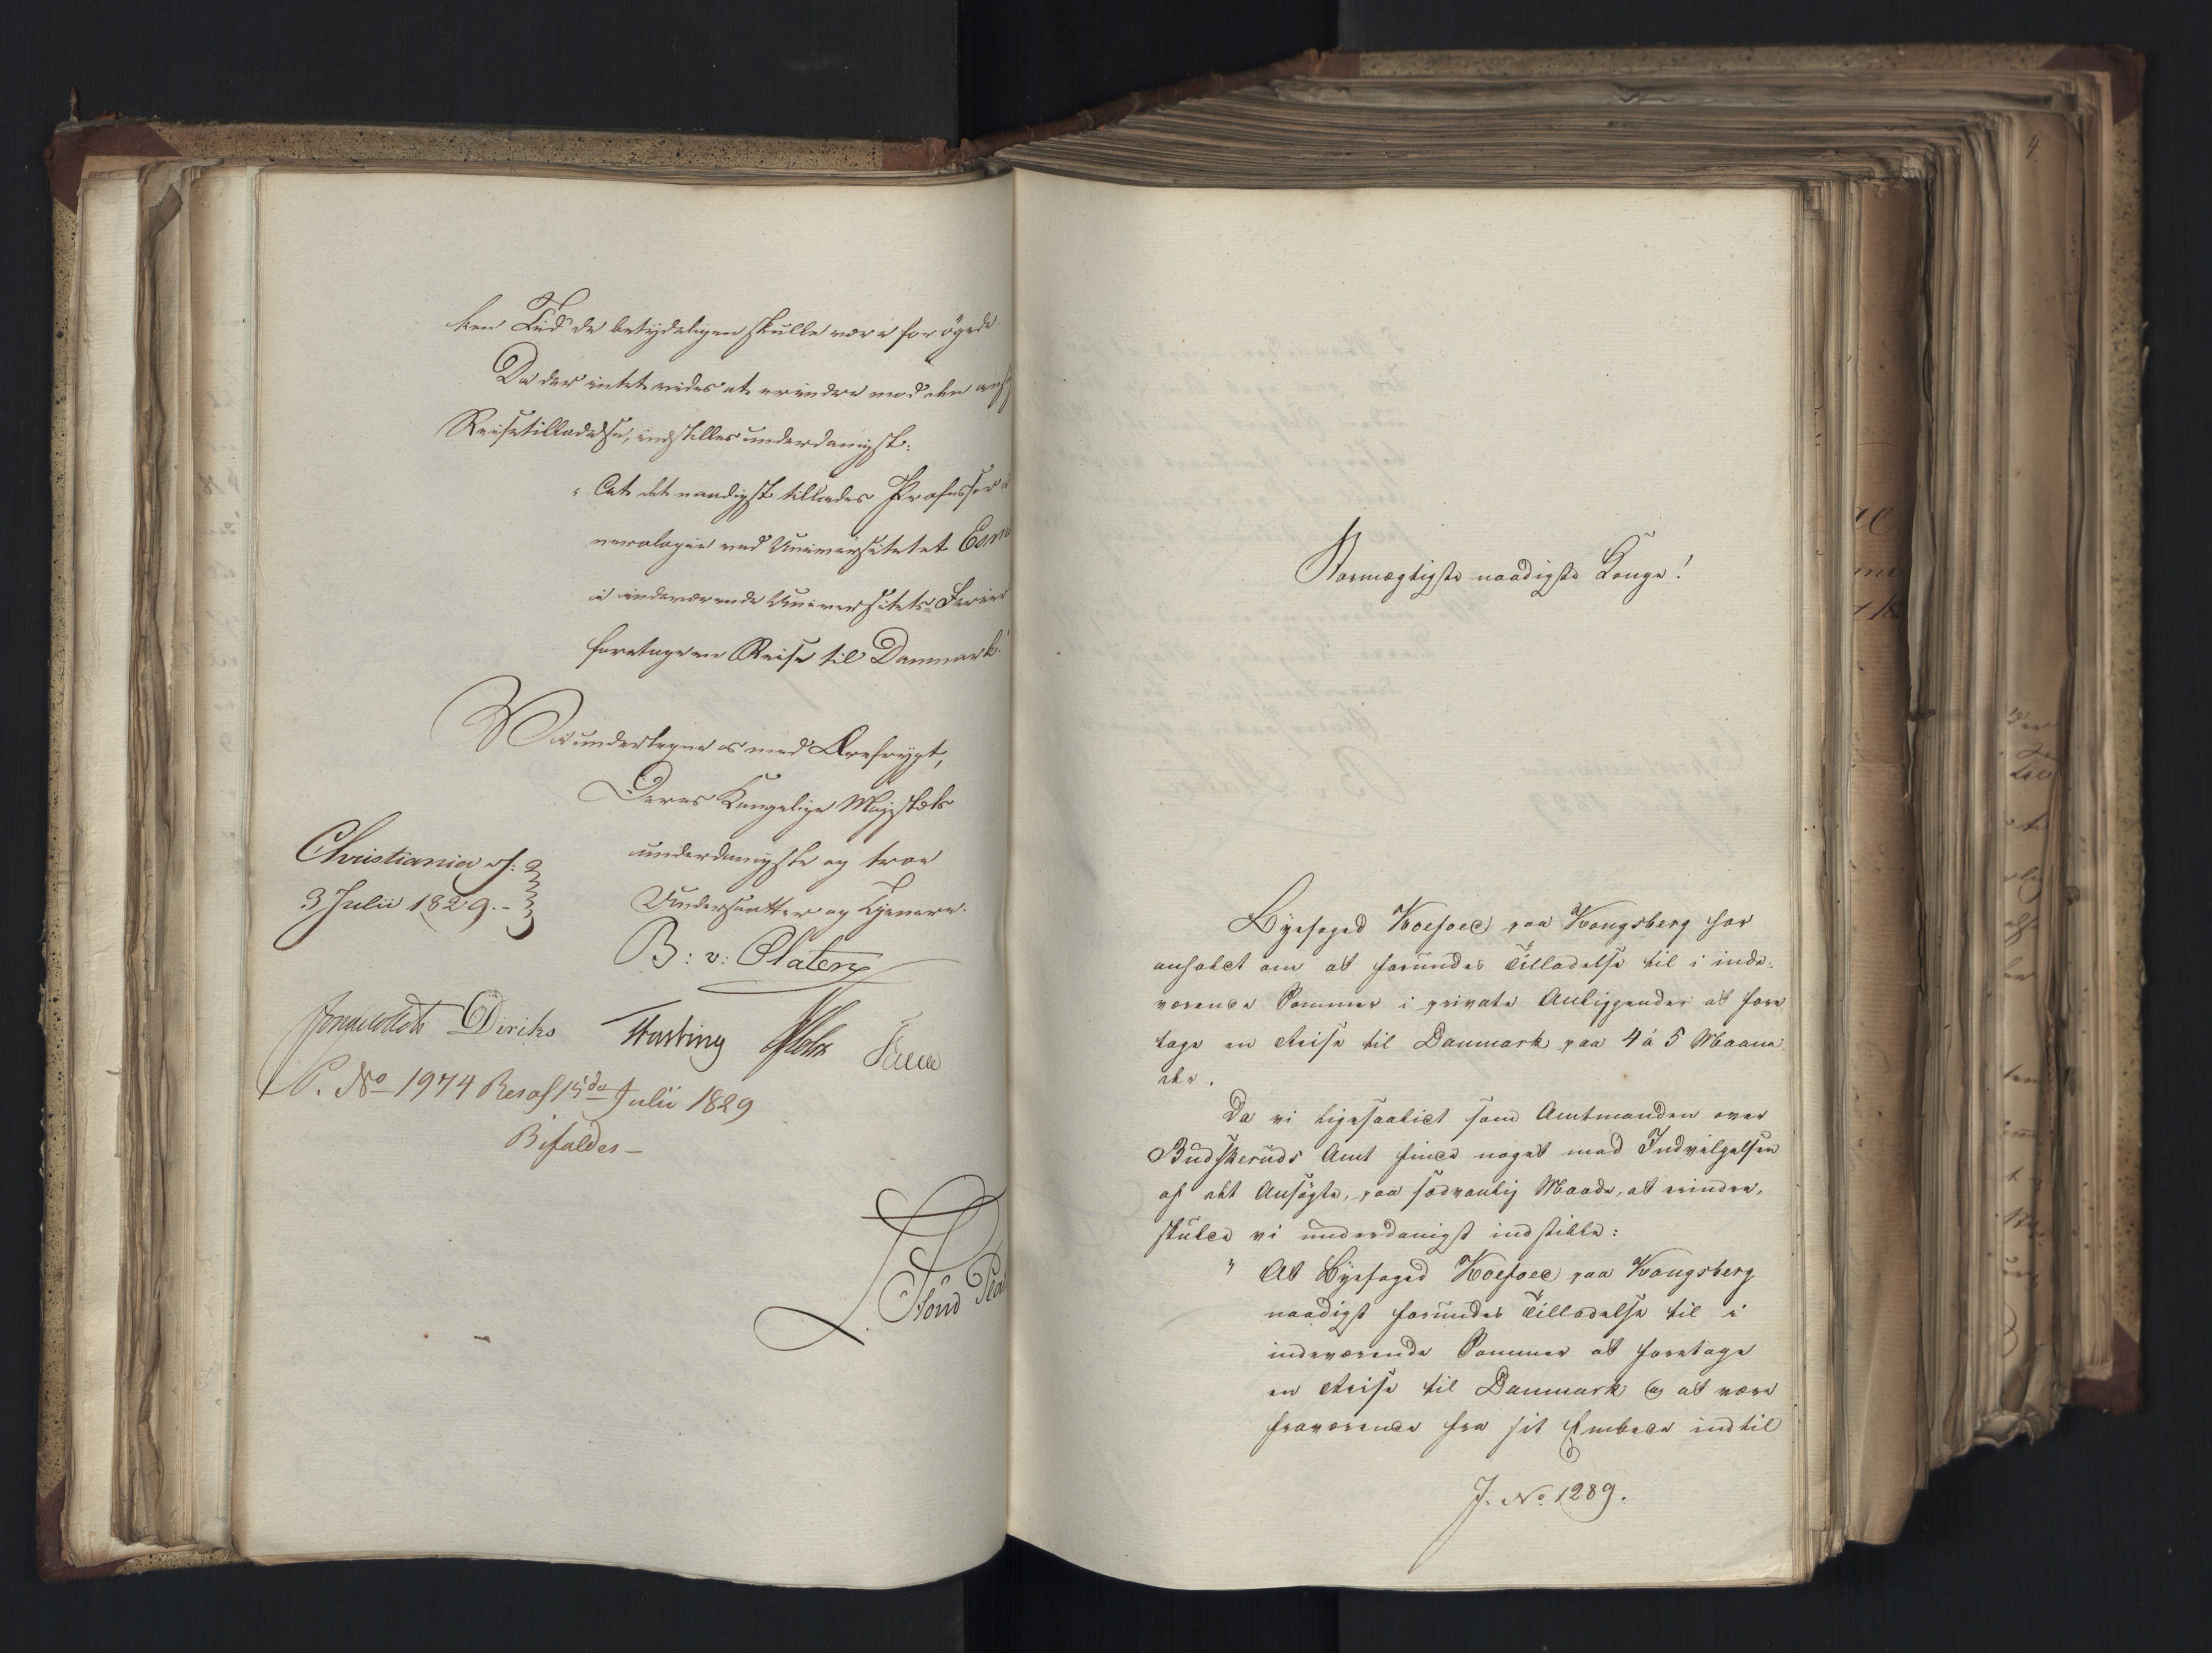 ken Tid de betydeligen skulle være forøgede.
Da der intet vides at erindre mod den
Reisetilladelse, indstilles underdanigst:
" At det naadigst tillades Professor
neralogie ved Universitetet Esm
i indeværende Universitets-Ferier
foretage en Reise til Danmark."
Vi undertegne os med Ærefrygt,
Deres Kongelige Majestæts
underdanigste og troe
Undersaatter og Tjenere.
Christiania d:
3 Julii 1829.-
B: v: Platen
Diriks Motzfeldt Fasting Holst
P. No 1974 Res af 15de Julii 1829
Bifaldes-
Stormægtigste naadigste Konge!
Byefoged Koefoed paa Kongsberg har
ansøket om at forundes Tilladelse til i inde-
værende Sommer i private Anliggender at fore
tage en Reise til Danmark paa 4 á 5 Maane
der.
Da vi ligesaalidt som Amtmanden over
Budskeruds Amt finde noget mod Indvilgelsen
af det Ansøgte, paa sædvanlig Maade, at erindre,
skulde vi underdanigst indstille:
" At Byefoged Koefoed paa Kongsberg
naadigst forundes Tilladelse til i
indeværende Sommer at foretage
en Reise til Danmark og at være
fraværende fra sit Embede indtil
J. No 1289.